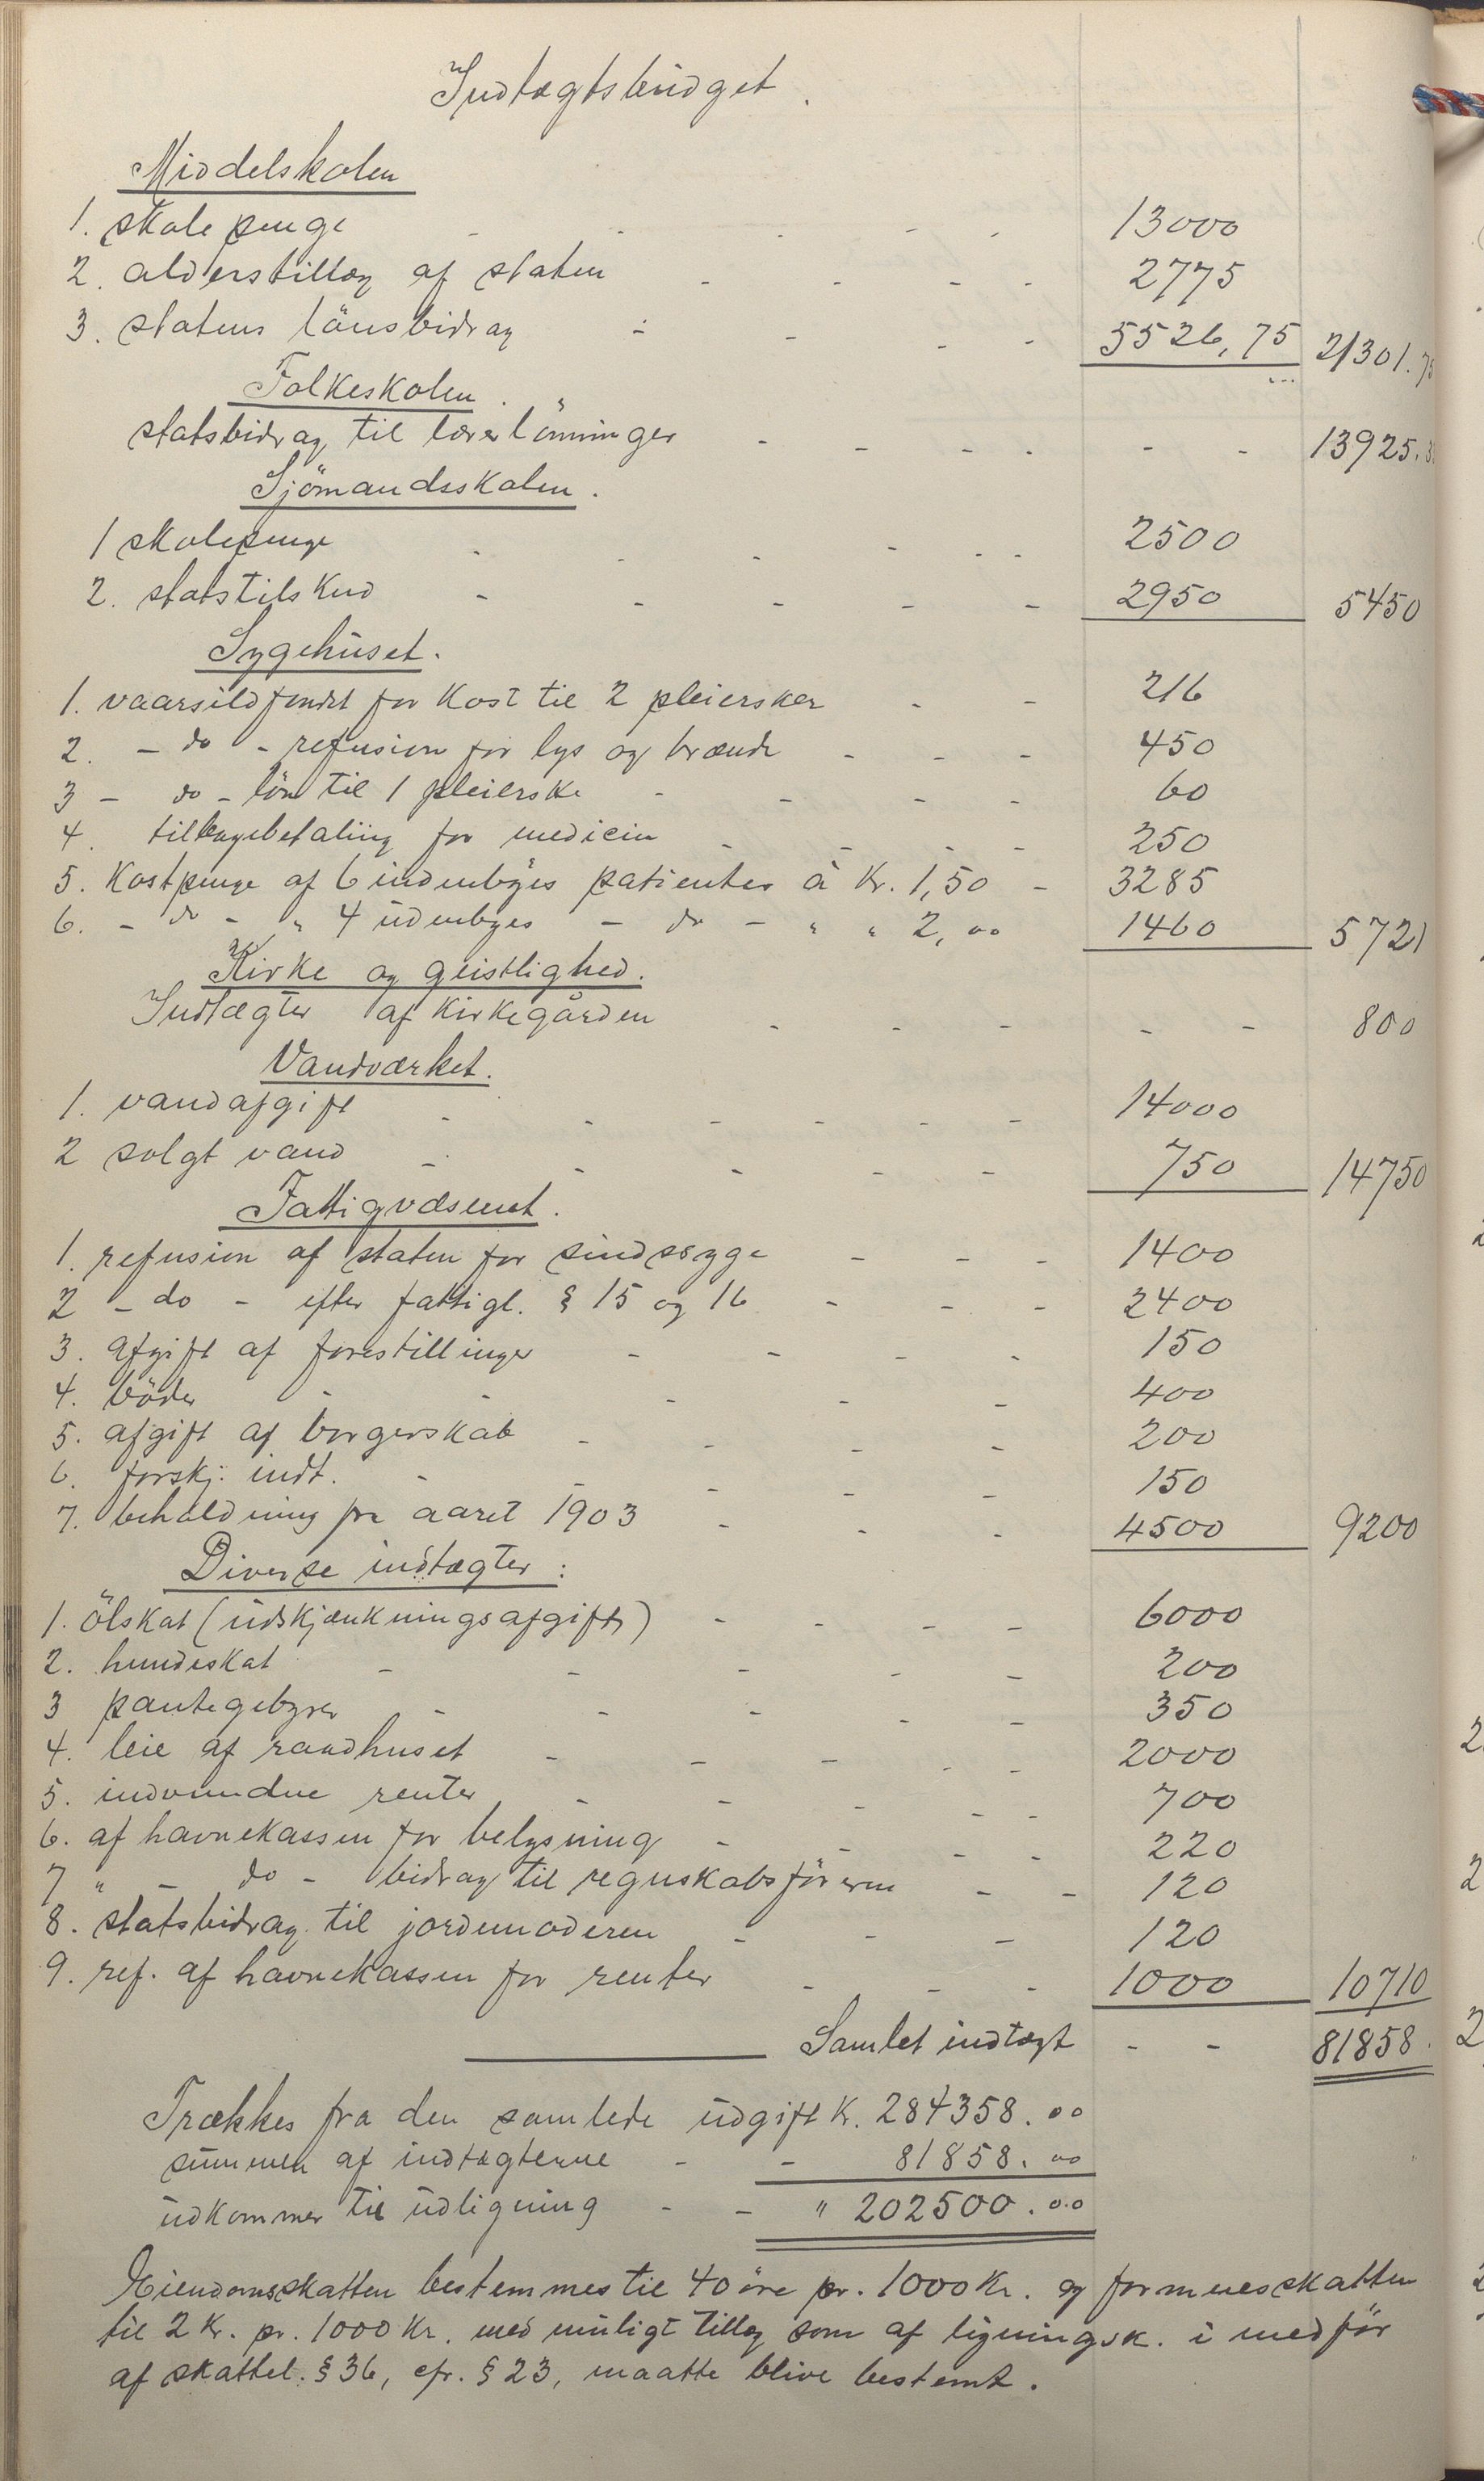 Indtægtsbudget.
Middelskolen
1. skolepenge - - - - - 13000
2. alderstillæg af staten - - - - 2775
3. statens lönsbidrag - - - - 5526,75 21301.75
Folkeskolen.
statsbidrag til lærerlönninger - - - - - - 13925.
Sjömandsskolen.
1 skolepenge - - - - - - 2500
2. statstilskud - - - - - 2950 5450
Sygehuset.
1. vaarsildfondet for kost til 2 pleiersker - - 216
2. - do - refusion for lys og brænde - - - 450
3 - do - lön til 1 pleierske - - - - 60
4. tilbagebetaling for medicin - - - - 250
5. Kostpenge af 6 indenbÿes patienter à Kr. 1,50 - 3285
6. - do - " 4 udenbyes - do - " " 2,00 1460 5721
Kirke og geistlighed.
Indtægter af kirkegården - - - - - 800
Vandværket.
1. vandafgift - - - - - - 14000
2 solgt vand - - - - - 750 14750
Fattigvæsenet.
1. refusion af staten for sindssyge - - - 1400
2 - do - efter fattigl. § 15 og 16 - - - 2400
3. afgift af forestillinger - - - - 150
4. böder - - - - - 400
5. afgift af borgerskab - - - - 200
6. forskj. indt. - - - - - 150
7. beholdning fra aaret 1903 - - - 4500 9200
Diverse indtægter:
1. ölskat (udskjænkningsafgift) - - - - 6000
2. hundeskat - - - - - 200
3 pantegebyrer - - - - - 350
4. leie af raadhuset - - - - - 2000
5. indvundne renter - - - - - 700
6. af havnekassen for belysning - - - - 220
7 " - do - bidrag til regnskabsföreren - - 120
8. statsbidrag til jordemoderen - - - 120
9. ref. af havnekassen for renter - - - 1000 10710
Samlet indtægt - - 81858.
Trækkes fra den samlede udgift Kr. 284358.00
summen af indtægterne - - 81858.00
udkommer til udligning - - " 202500.00
Eiendomsskatten bestemmes til 40 öre pr. 1000 Kr. og formuesskatten
til 2 Kr. pr. 1000 Kr. med muligt tillæg som af ligningsk. i medför
af skattel. § 36, cfr. § 23, maatte blive bestemt.